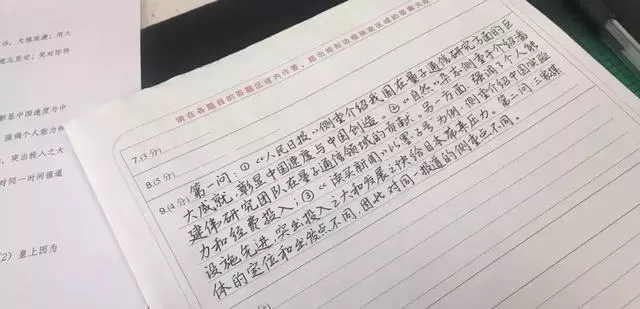 活、大雅浪漫;用大
难志坚定;笑对即将
彰显中国速度与中
强调个人能力和
突出投入之大
对同一时间报道
(2) 皇上因为
请在各题目的答题区域内作答,超出矩形边框限定区域的答案无效
7.(3分)
8.(3分)
9.(4分)
第一问:①《人民日报》侧重介绍我国在量子通信研究方面的巨
大成就,彰显中国速度与中国创造。②《自然·杂志》侧重于介绍我
建伟研究团队在量子通信领域的贡献。另一方面,强调了个人能
力和经费投入;③《读头新闻》以墨子号为例,侧重介绍中国实验
设施先进,突出投入之大和发展之快给日本带来压力。第二问:三家媒
体的定位和出发点不同,因此对同一报道的侧重点不同。